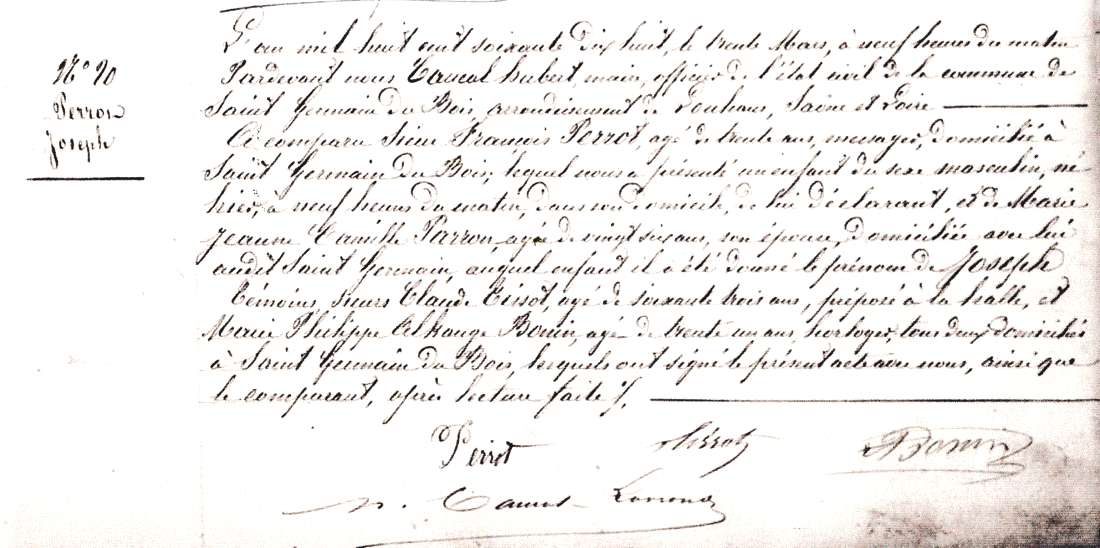 N° 20
Perrot
Joseph
L'an mil huit cent soixante dix huit, le trente Mars, à neuf heures du matin
Pardevant nous Caucal hubert, maire, officier de l'état civil de la commune de
Saint Germain du Bois, arrondissement de Louhans, Saône et Loire
A comparu Sieur François Perrot, agé de trente ans, messager, domicilié à
Saint Germain du Bois, lequel nous a présenté un enfant du sexe masculin, né
hier, à neuf heures du matin, dans son domicile, de lui déclarant, et de Marie
Jeanne Camille Parron agée de vingt six ans, son épouse, domiciliée avec lui
audit Saint Germain, auquel enfant il a été donné le prénom de Joseph
Témoins, sieurs Claude Tissot, agé de soixante trois ans, préposé à la halle, et
Marie Philippe Bonin, agé de trente un ans, horloger, tous deux domiciliés
à Saint Germain du Bois, lesquels ont signé le présent acte avec nous, ainsi que
le comparant, après lecture faite /.
Perrot Tissot Bonin